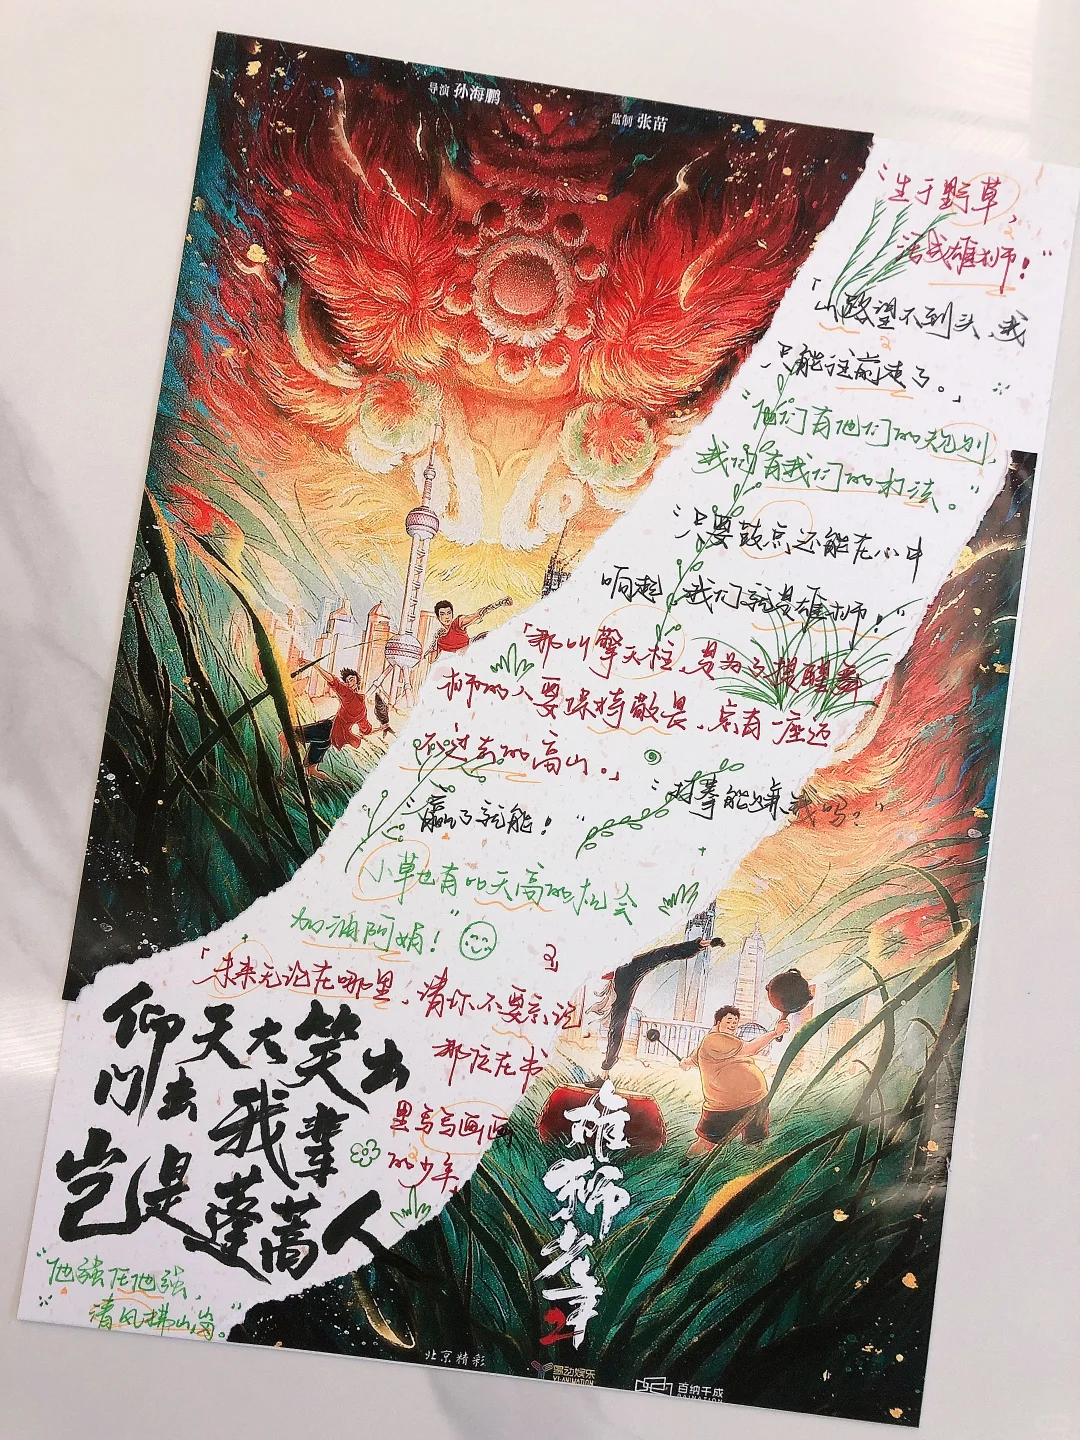 导演 孙海鹏
监制 张苗
“生于野草，
活成雄狮！”
「山路望不到头，我
只能往前走了。」
“他们有他们的规则，
我们有我们的打法。”
“只要鼓点还能在心中
响起，我们就是雄狮！”
「那叫擎天柱，是为了提醒舞
狮的人要保持敬畏，总有一座迈
不过去的高山。」
“打拳能赚钱吗？”
“赢了就能！”
小草也有吅天高的机会
加油阿娟！”
「未来无论在哪里，请你不要忘记，
那位在书
里写写画画
的少年」
仰天大笑出
门去 我辈
岂是蓬蒿人
“他强任他强，
清风拂山岗。”
雄狮少年
2
北京精彩
易动娱乐
YI ANIMATION
百纳千成